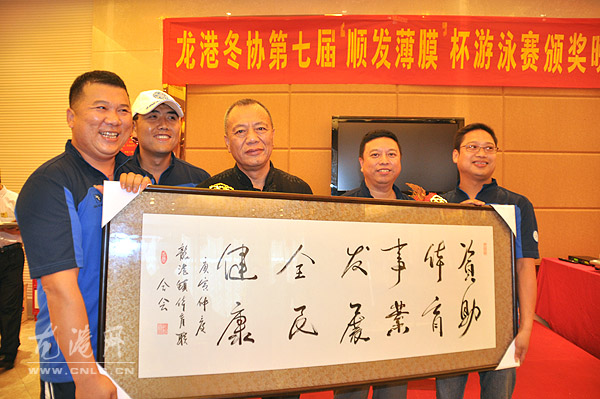 龙港冬协第七届"顺发薄膜"杯游泳赛颁奖晚
资助
体育
事業
发展
全民
健康
庚寅仲夏
龍港鎮体育联
合会
龙港网
WWW.CNLG.CN